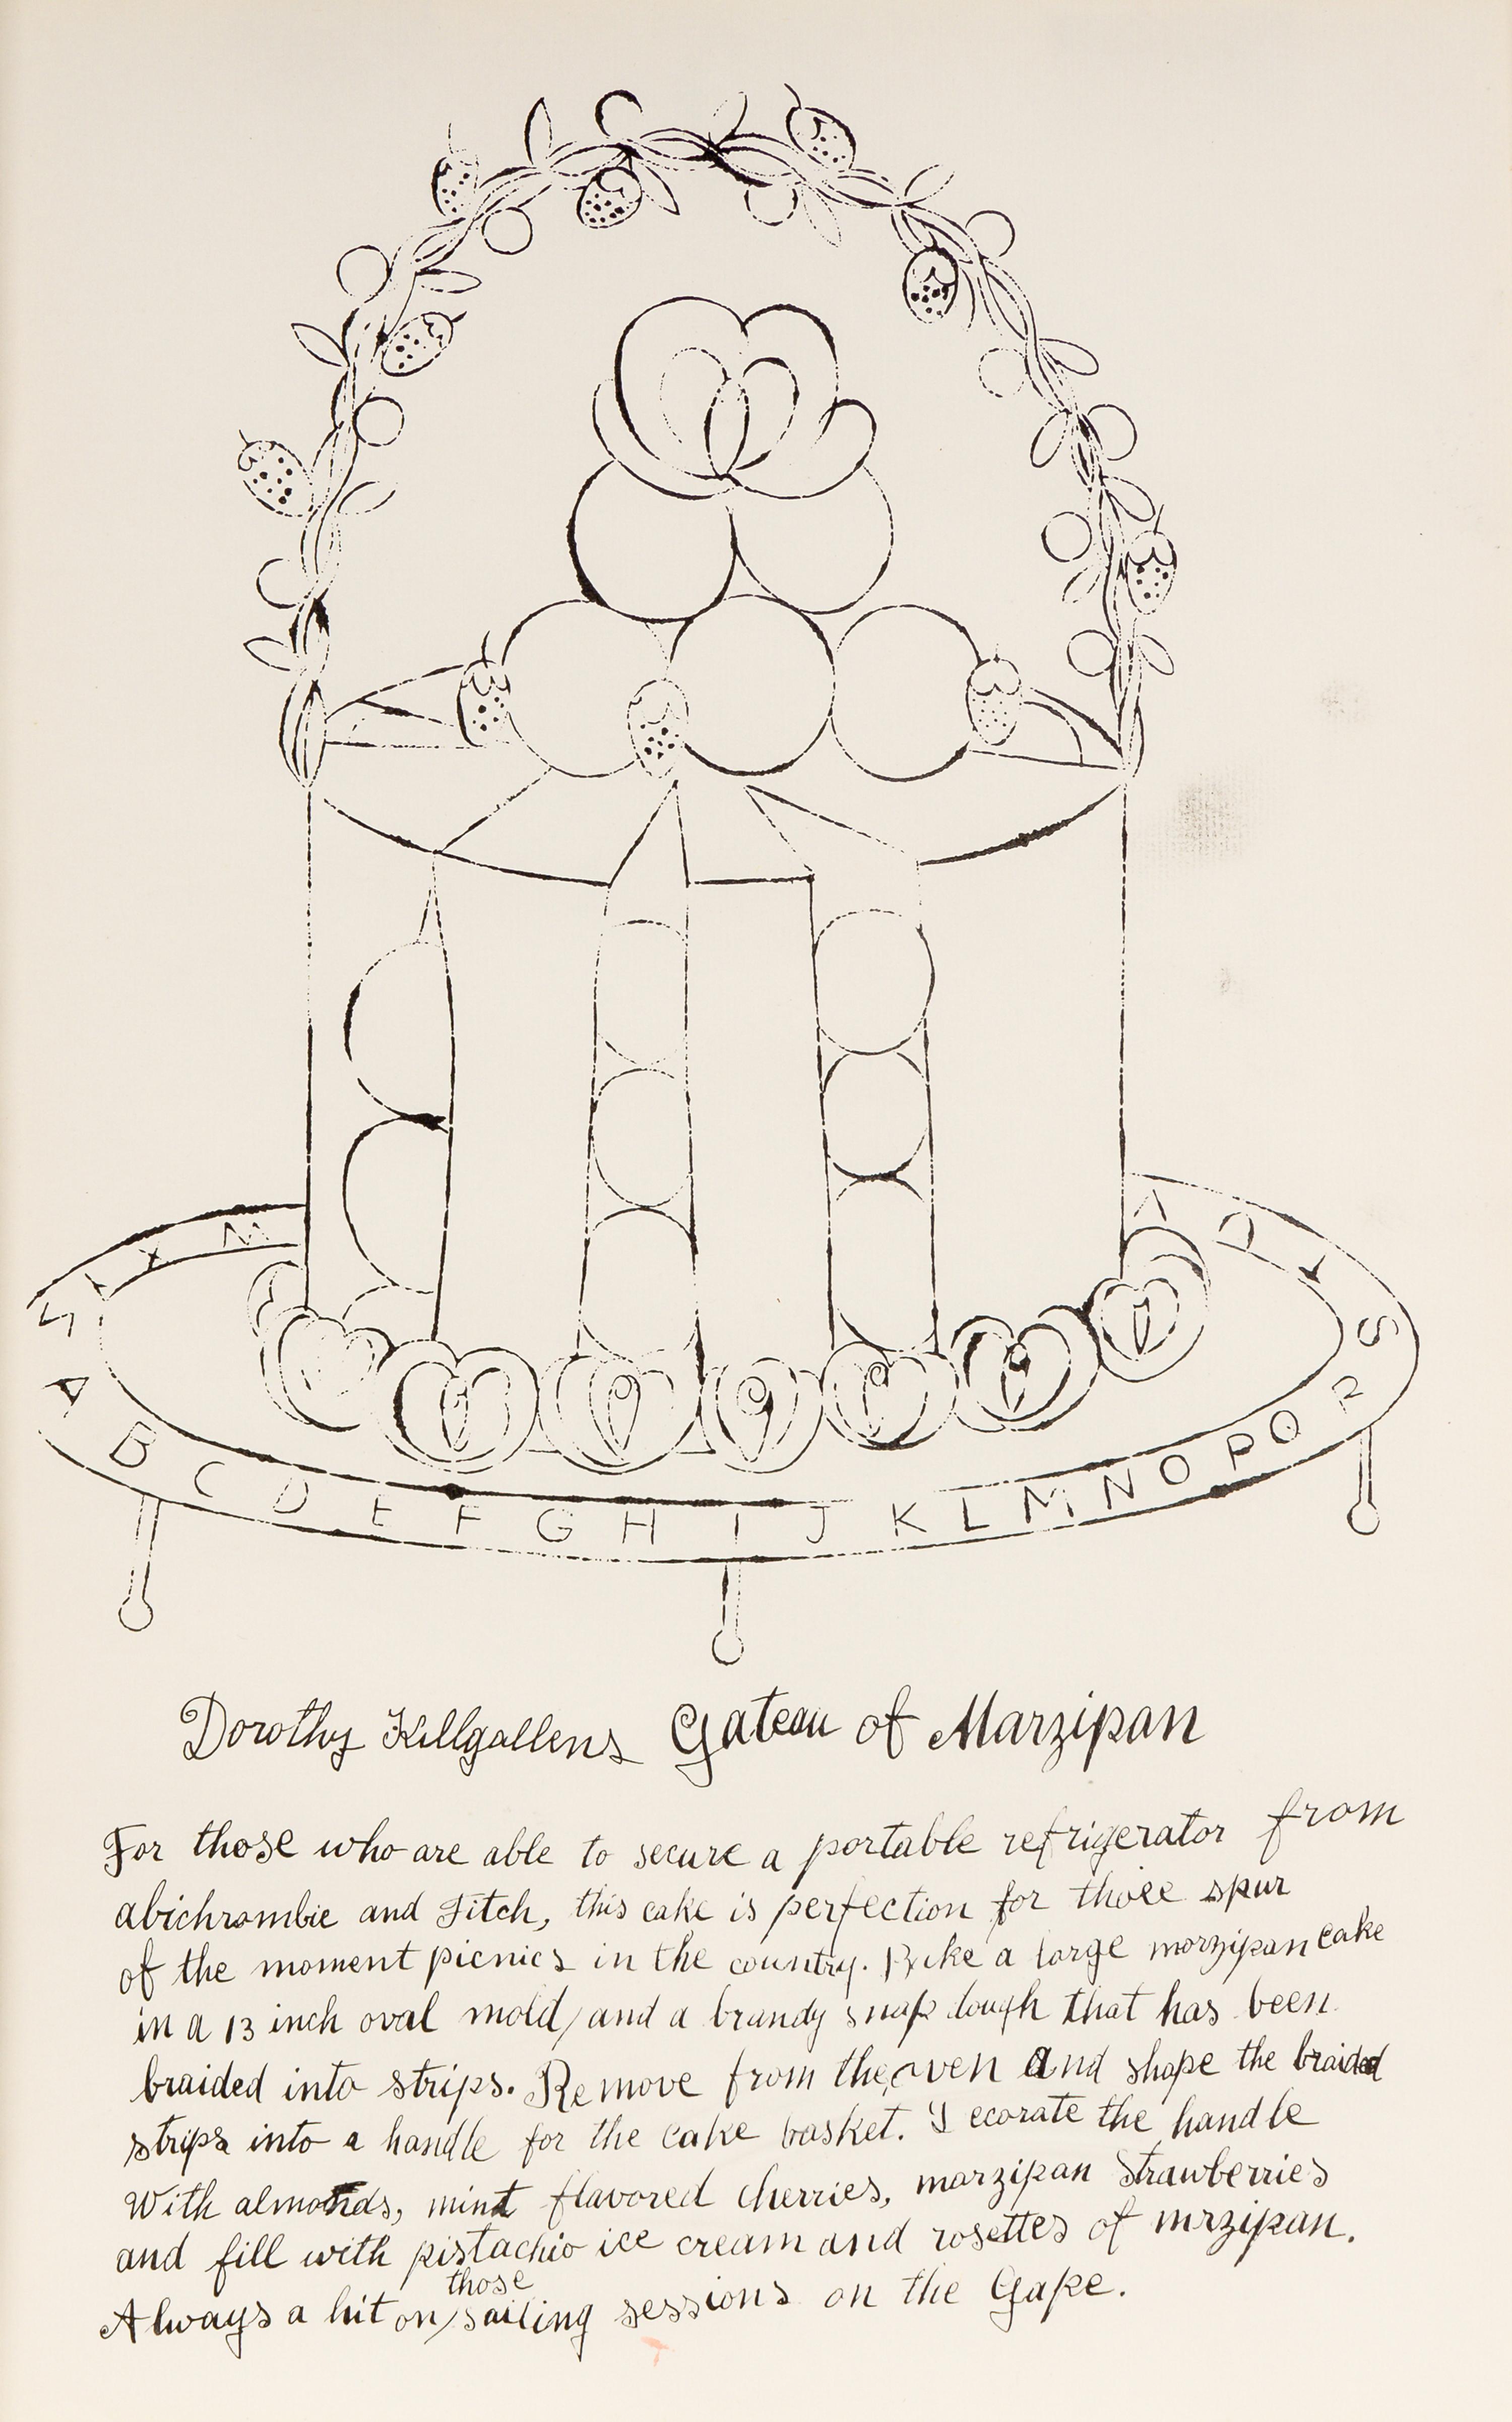 M X Y S
A B C D E F G H I J K L M N O P Q R S
Dorothy Killgallens Gateau of Marzipan
For those who are able to secure a portable refrigerator from
abichrombie and Fitch, this cake is perfection for those spur
of the moment picnics in the country. Bake a large marzipan cake
in a 13 inch oval mold, and a brandy snap dough that has been
braided into strips. Remove from the oven and shape the braided
strips into a handle for the cake basket. Decorate the handle
With almonds, mint flavored cherries, marzipan strawberries
and fill with pistachio ice cream and rosettes of mrzipan.
those
Always a hit on, sailing sessions on the Gape.